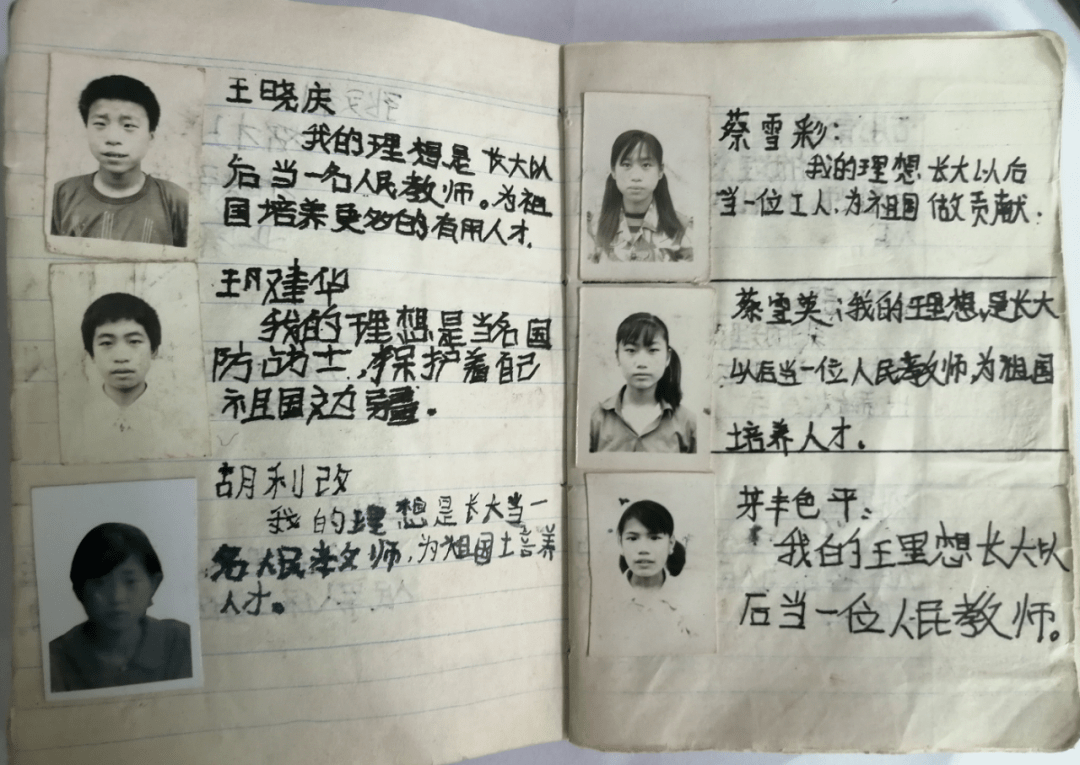 王晓庆
我的理想是长大以
后当一名人民教师。为祖
国培养更多的有用人才.
建华
我的理想是当名国
防战士,保护着自己
祖国边疆。
胡利改
我的理想是长大当一
名人民教师,为祖国培养
人才。
蔡雪彩:
我的理想长大以后
当一位工人,为祖国做贡献.
蔡雪英:我的理想,是长大
以后当一位人民教师,为祖国
培养人才。
艳平:
我的理想长大以
后当一位人民教师。